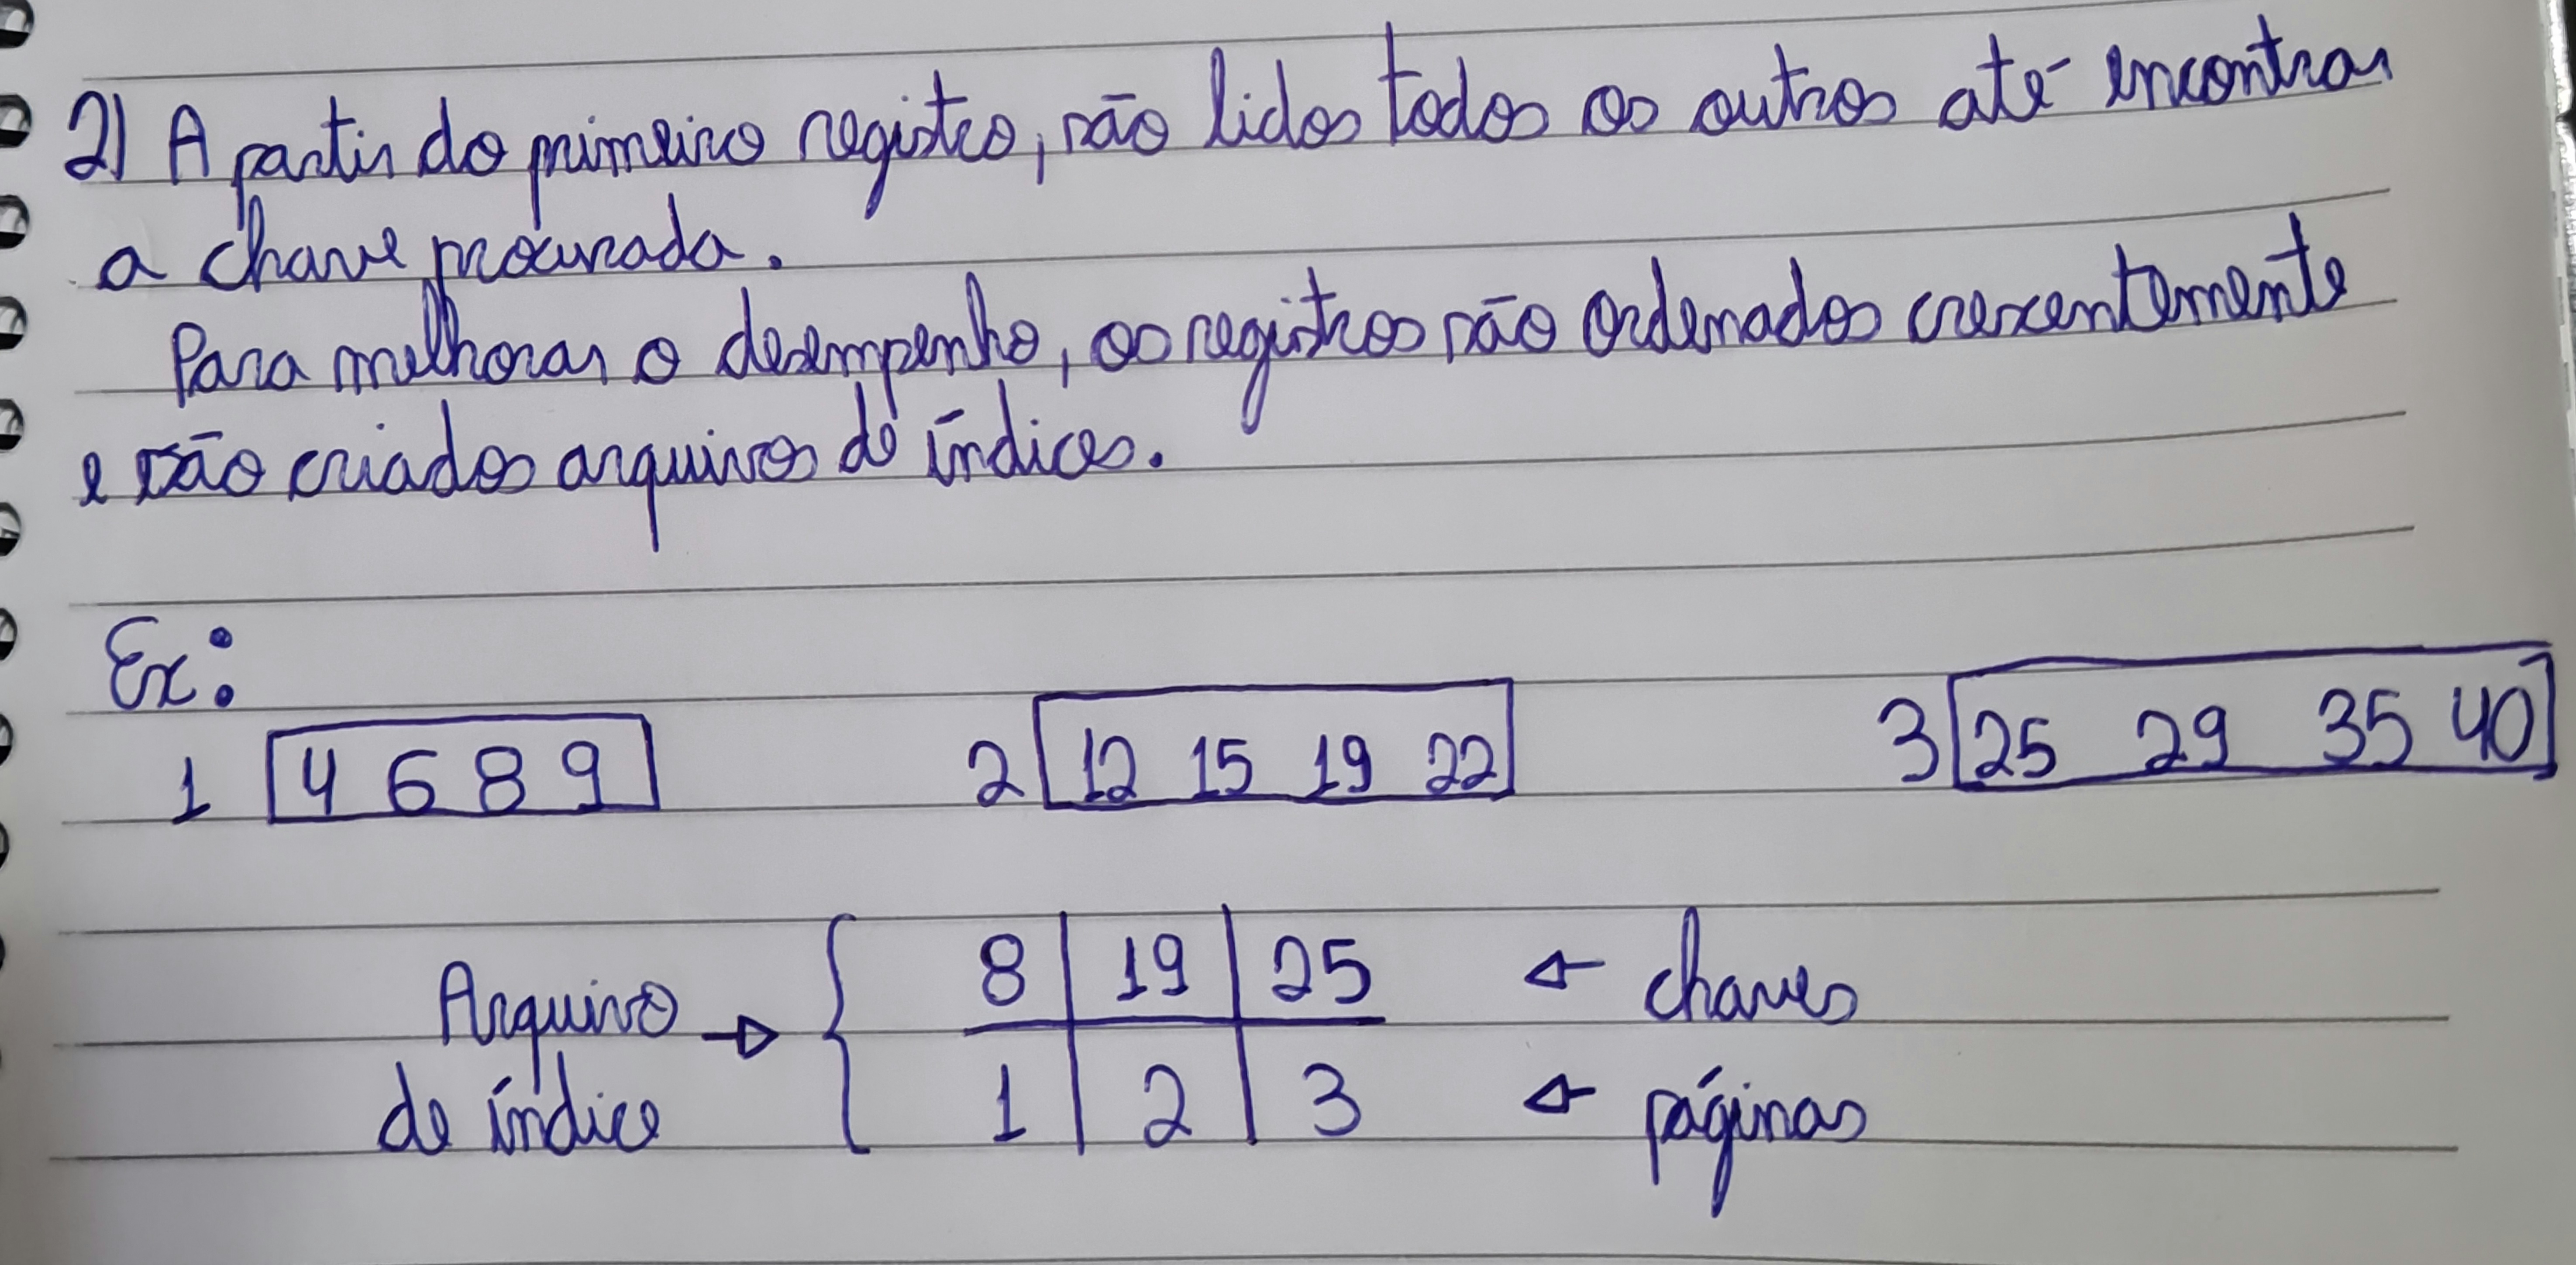 2) A partir do primeiro registro, são lidos todos os outros até encontrar
a chave procurada.
Para melhorar o desempenho, os registros são ordenados crescentemente
e são criados arquivos de índices.
Ex:
1 4 6 8 9 2 12 15 19 22 3 25 29 35 40
8 19 25 ← chaves
Arquivo →
de índice 1 2 3 ← páginas